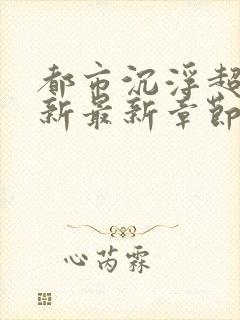 都市沉浮超
新最新章節
心芮霖